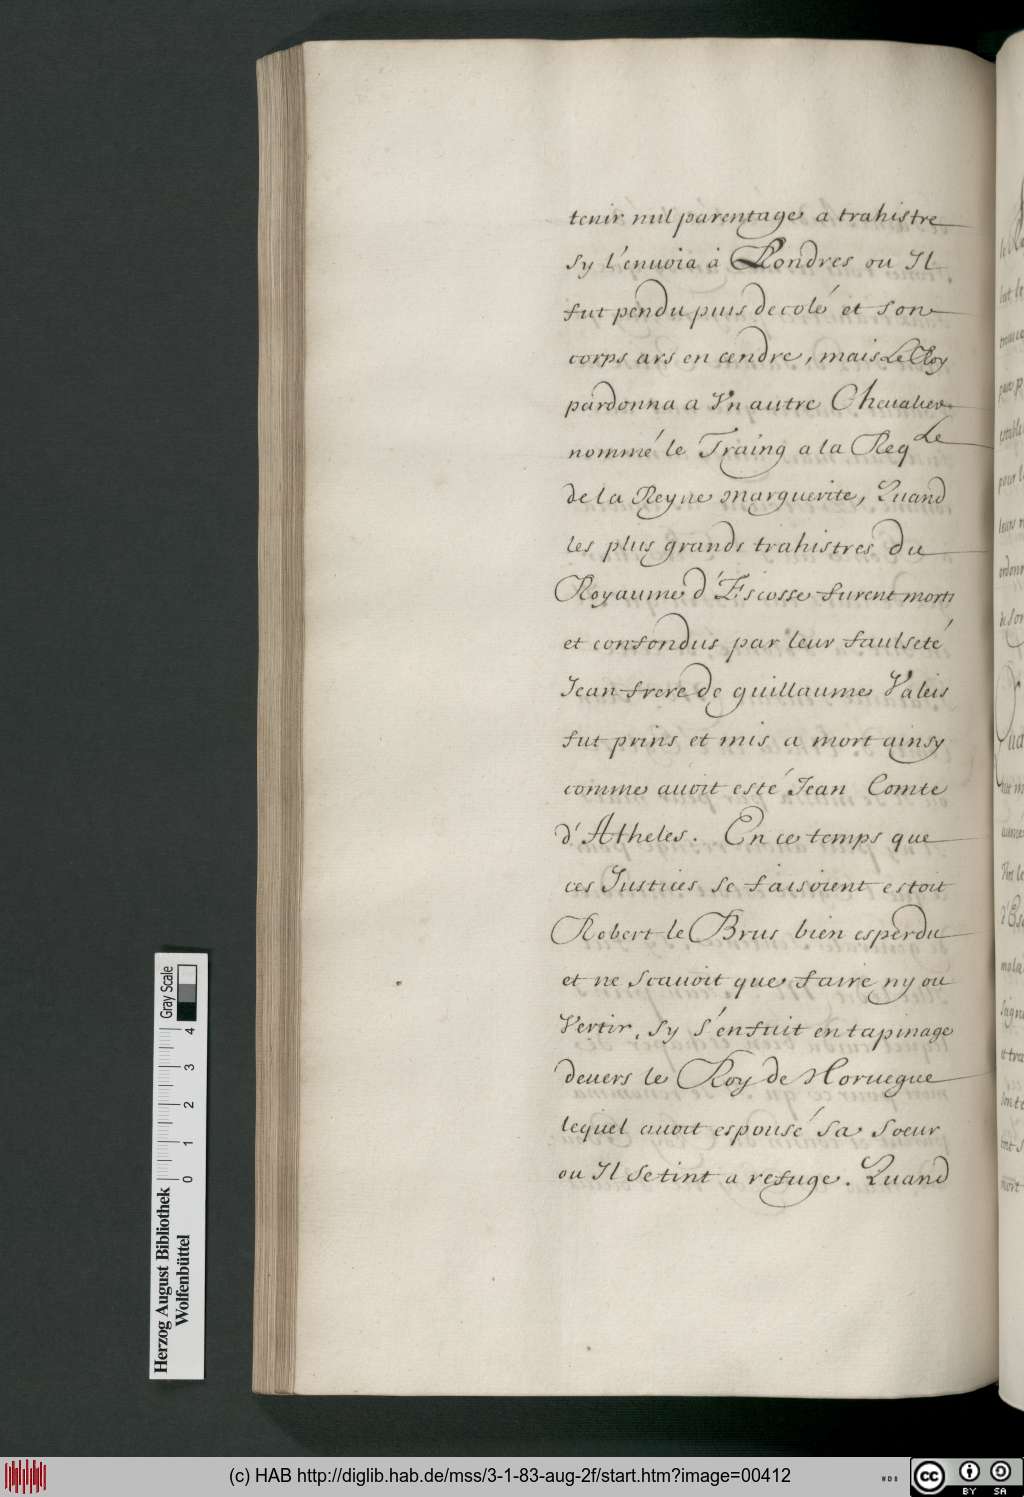 tenir nul parentage a trahistre
sy l'enuoia à Londres ou Il
fut pendu puis decolé et son
corps ars en cendre, mais Le Roy
pardonna a Vn autre Cheualier
nommé le Traing a la Req^le
de la Reyne marguerite, Quand
les plus grands trahistres du
Royaume d'Escosse furent morts
et confondus par leur faulseté
Jean frere de guillaume Valeis
fut prins et mis a mort ainsy
comme auoit esté Jean Comte
d'Atheles. En ce temps que
ces Justices se faisoient estoit
Robert le Brus bien esperdu
et ne scauoit que faire ny ou
Vertir, sy s'enfuit en tapinage
deuers le Roy de Noruegue
lequel auoit espousé sa soeur
ou Il se tint a refuge. Quand
Herzog August Bibliothek
Wolfenbüttel
0 1 2 3 4
Gray Scale
(c) HAB http://diglib.hab.de/mss/3-1-83-aug-2f/start.htm?image=00412
WDB
cc BY SA